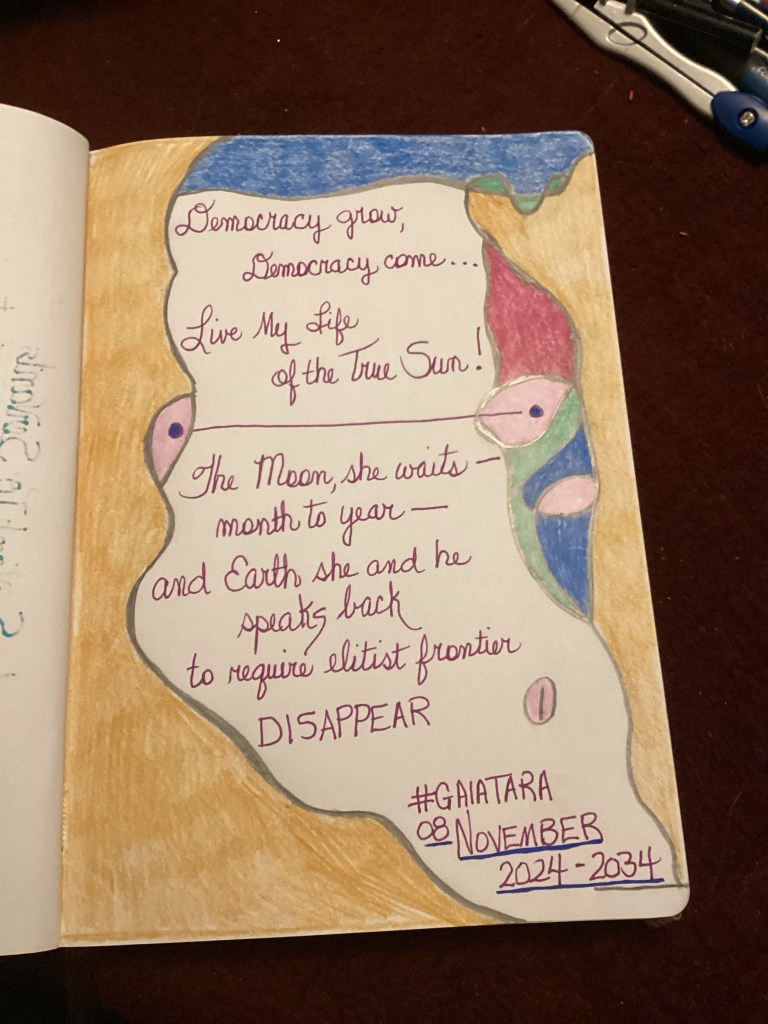 Democracy grow,
Democracy come...
Live My Life
of the True Sun!
The Moon, she waits —
month to year —
and Earth she and he
speaks back
to require elitist frontier
DISAPPEAR
#GAIATARA
08 NOVEMBER
2024-2034